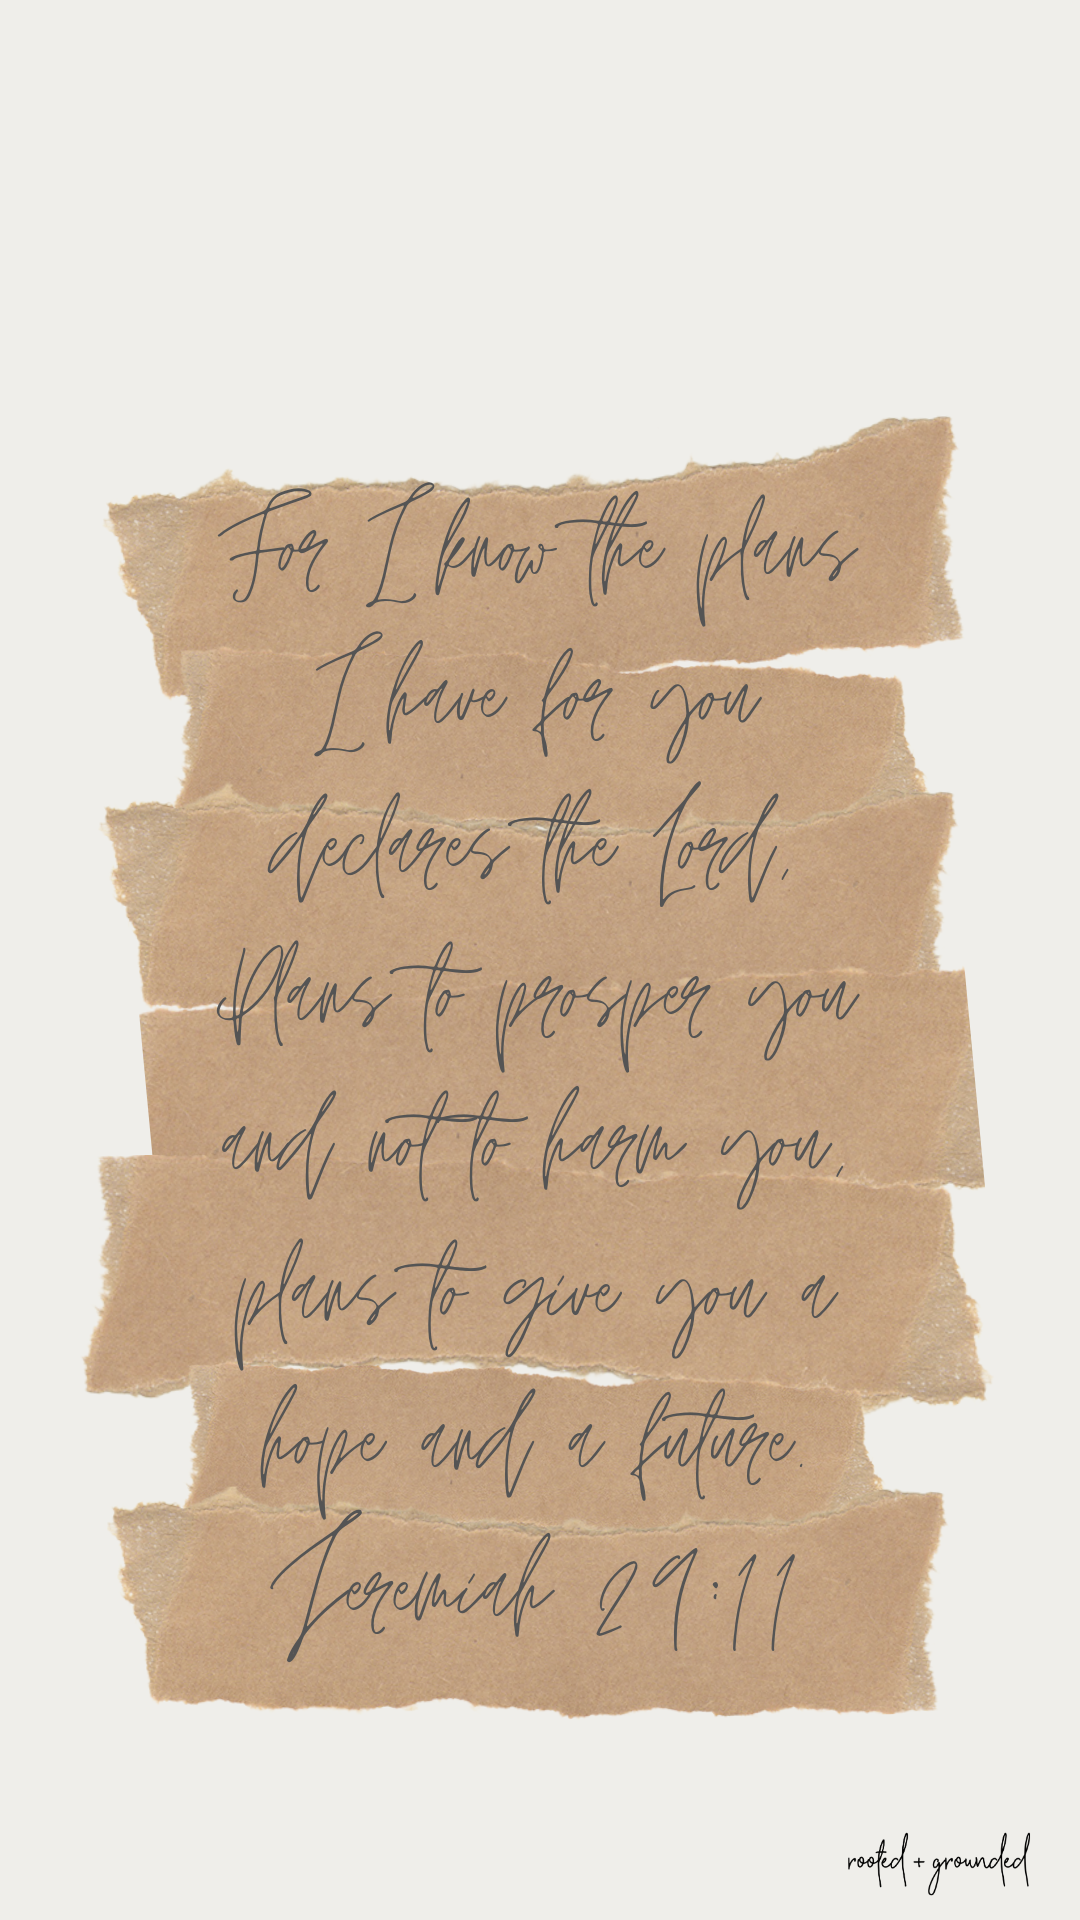 For I know the plans
I have for you
declares the Lord,
Plans to prosper you
and not to harm you,
plans to give you a
hope and a future.
Jeremiah 29:11
rooted + grounded